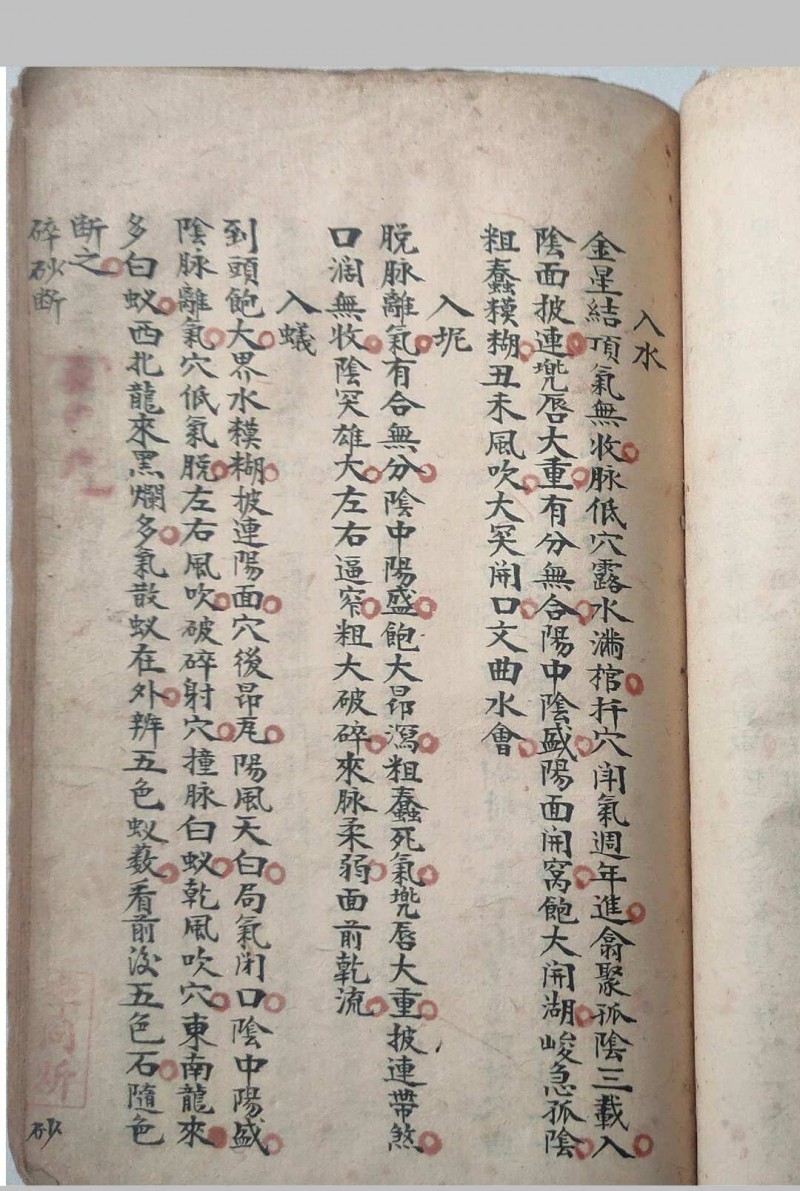 入水
金星結頂氣無收脉低穴露水满棺扦穴闭氣週年進翕聚孤陰三載入
陰面披連兠唇大重有分無合陽中陰盛陽面開窝飽大開湖峻急孤陰
粗蠢糢糊丑未風吹大突開口文曲水會
入坭
脱脉離氣有合無分陰中陽盛飽大昂瀉粗蠢死氣兠唇大重披連帶煞
口濶無收陰突雄大左右逼窄粗大破碎來脉柔弱面前乾流
入蟻
到頭飽大界水糢糊披連陽面穴後昂瓦陽風天白局氣闭口陰中陽盛
陰脉離氣穴低氣脱左右風吹破碎射穴撞脉白蚁乾風吹穴東南龍來
多白蚁西北龍來黑爛多氣散蚁在外辨五色蚁薮看前後五色石隨色
断之
碎砂断
砂